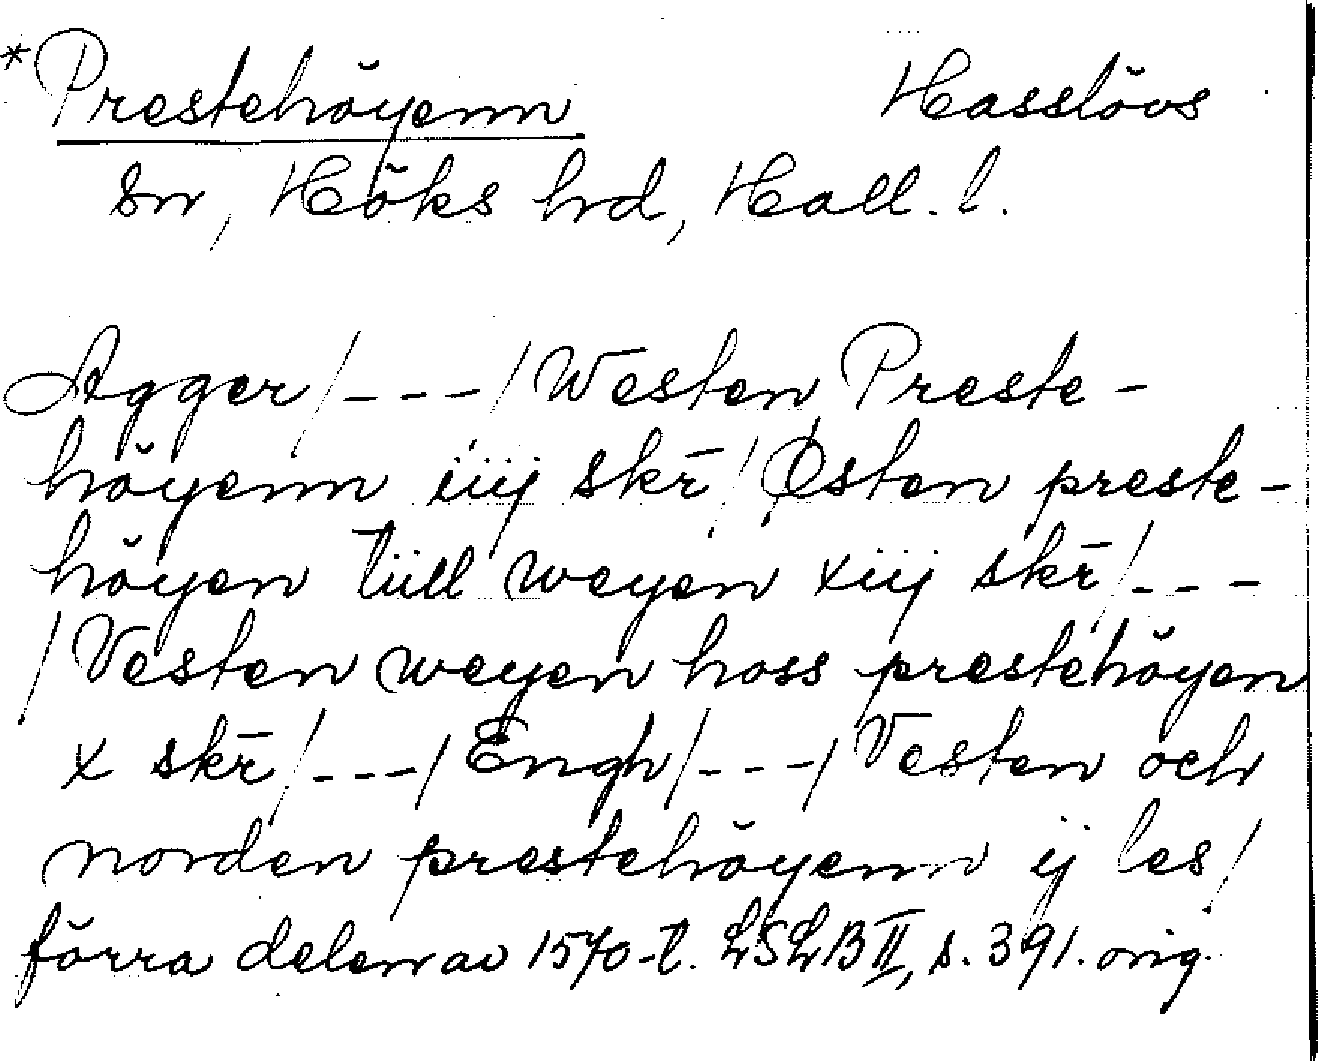 *Prestehöyenn Hasslövs
sn, Höks hrd, Hall. l.
Agger/---/Westen Preste-
höyenn iiij skr̄/Østen preste-
höyen tüll weyen xiij skr̄/---
/Vesten weyen hoss prestehöyen
x skr̄/---/Engh/---/Vesten och
norden prestehöyenn ij les/
förra delen av 1570-t. LSLB II, s. 391. orig.